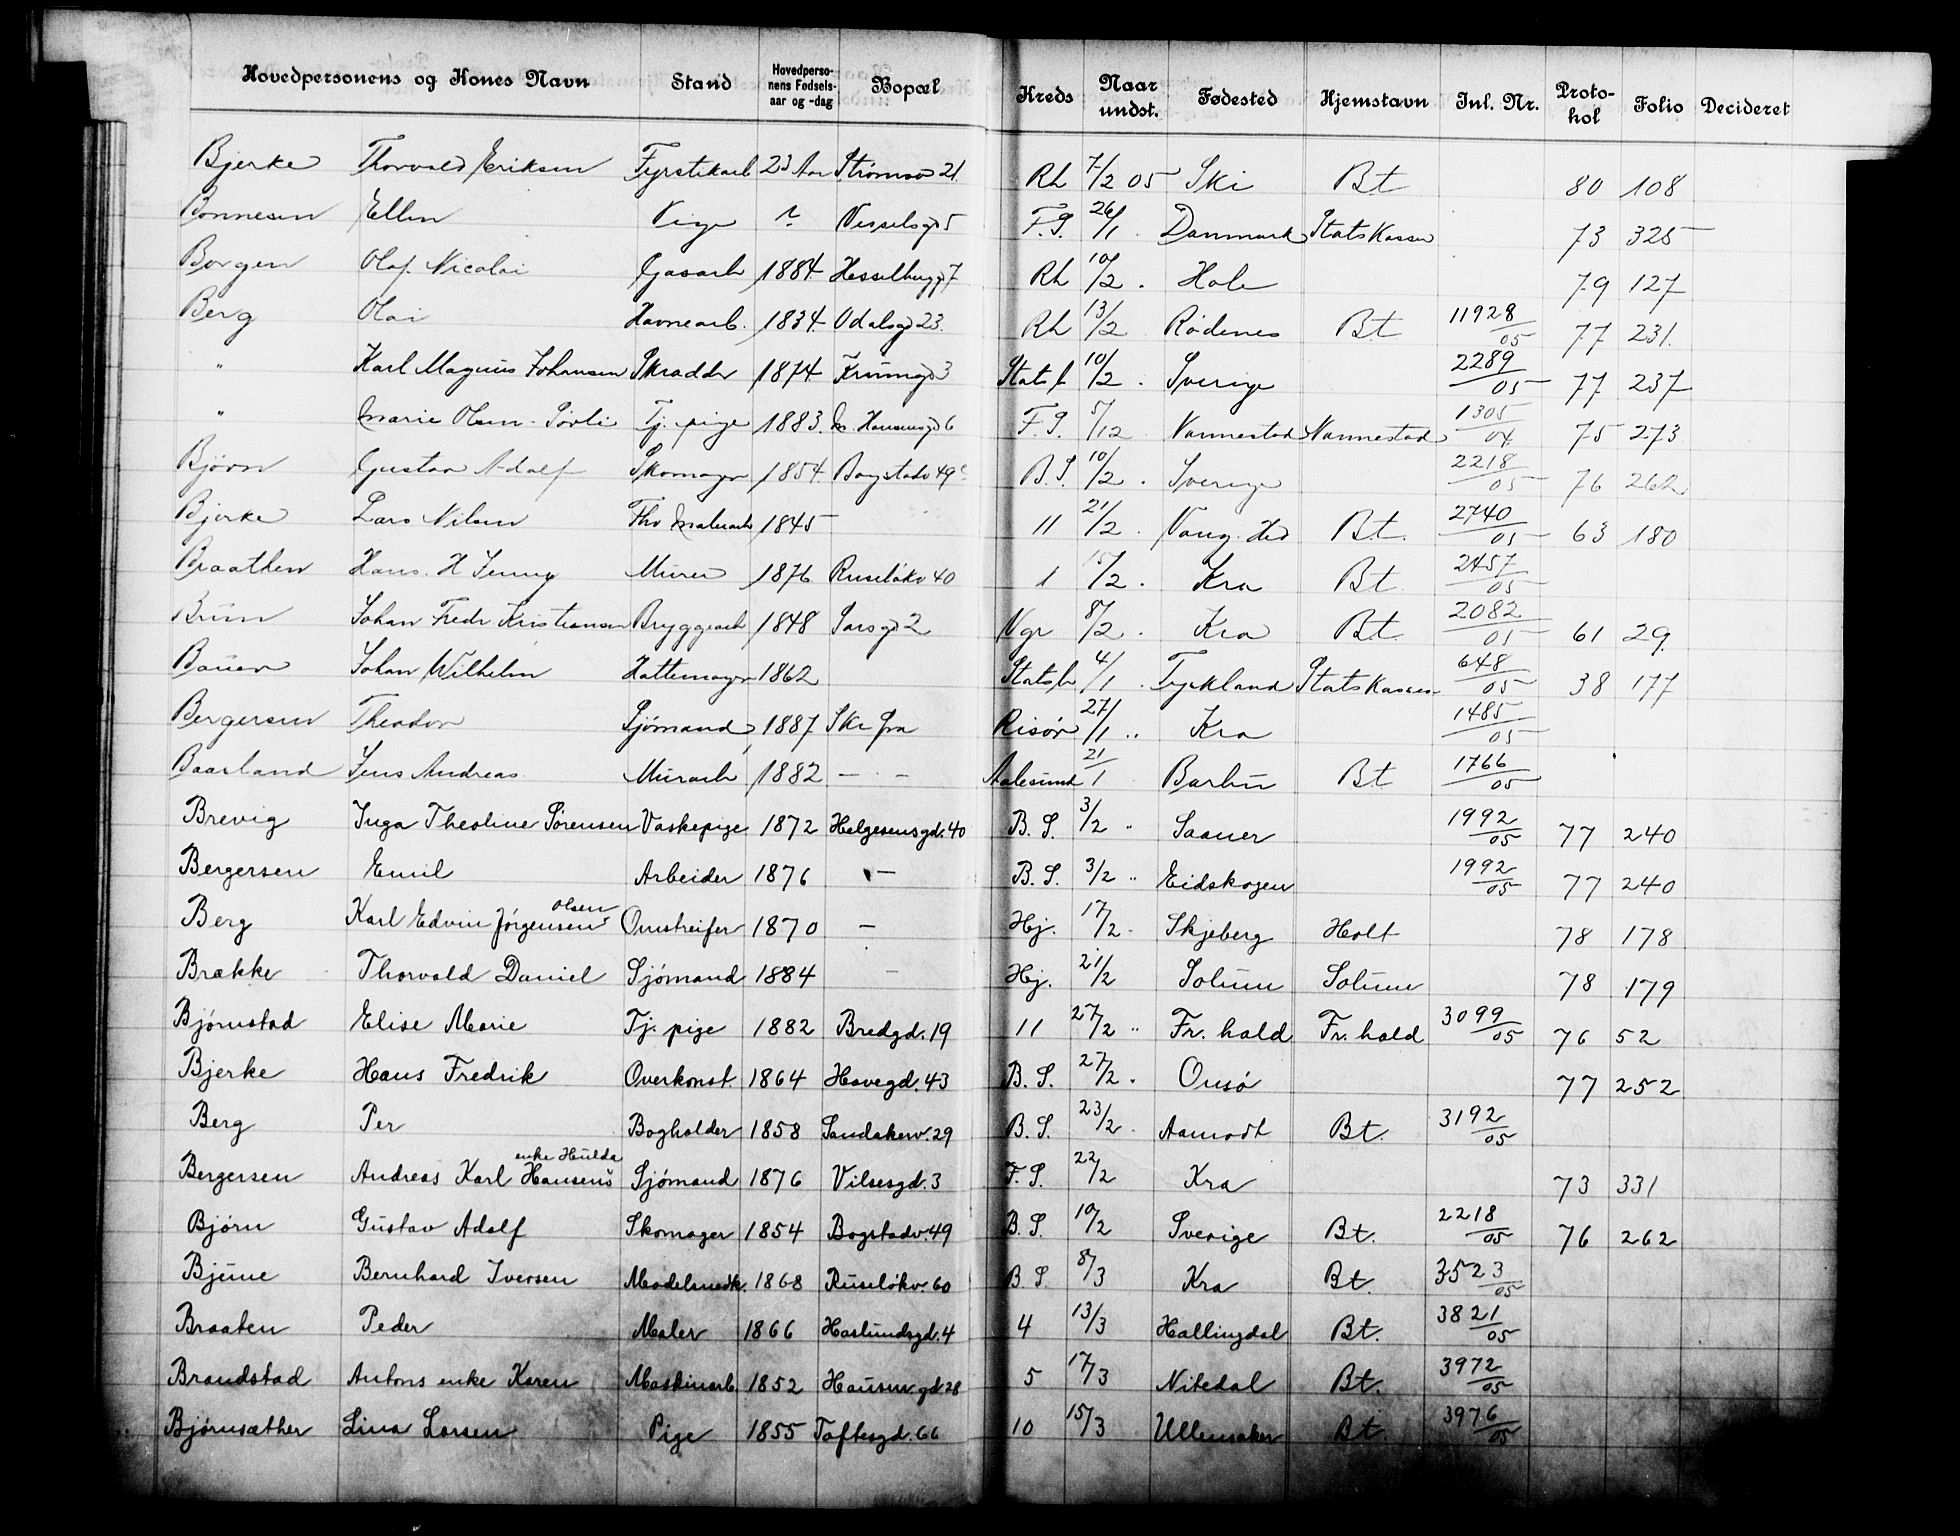 Hovedpersonens og Kones Navn Stand Hovedpersonens Fødselsaar og -dag Bopæl Kreds Naar undst. Fødested Hjemstavn Inl. Nr. Protokol Folio Decideret
Bjerke Thorvald Eriksen Fyrstikarb 23 Aar Strømsv 21. Rh 7/2 05 Ski Bt 80 108
Bonnesen Ellen Pige ? Vesselsgd 5 F.S. 26/1 . Danmark Statskassen 73 325
Borgen Olaf Nicolai Gasarb 1884 Hesselbergg 7 Rh 10/2 . Hole 79 127
Berg Olai Havnearb. 1834 Odalsgd 23. Rh 13/2 Rødenes Bt 11928/05 77 231.
" Karl Magnus Johansen Skrædder 1874 Krumgd 3 Statsb 10/2 . Sverige 2289/05 77 237
" Marie Olsen - Sørli Tj. pige 1883. M. Hansensgd 6 F.S. 5/12 Nannestad Nannestad 1305/04 75 273
Bjørn Gustav Adolf Skomager 1854 Bogstadv 49 B.S. 10/2 . Sverige 2218/05 76 262
Bjerke Lars Nilsen Fhv Malerarb 1845 11 21/2 . Vang. Hed Bt. 2740/05 63 180
Braathen Hans. H Jenny Murer 1876 Ruseløkv 40 1 15/2 . Kra Bt 2457/05
Bruun Johan Fredr Kristiansen Bryggearb 1848 Sarsgd 2 Vgr 8/2 . Kra Bt. 2082/05 61 29.
Bauer Johan Wilhelm Hattemager 1862 Statsb 4/1 . Tyskland Statskassen 648/05 38 177
Bergersen Theodor Sjømand 1887 Ski fra Risør 27/1 " Kra 1485/05
Baarland Jens Andreas Murarb 1882 — - — Aalesund 21/1 Barbu Bt 1766/05
Brevig Inga Theoline Sørensen Vaskepige 1872 Helgesensgd. 40 B.S. 3/2 " Saaner 1992/05 77 240
Bergersen Emil Arbeider 1876 — B.S. 3/2 " Eidskogen 1992/05 77 240
Berg Karl Edvin Jørgensen Olsen Omstreifer 1870 — Hj. 17/2 - Skjeberg Holt 78 178
Brække Thorvald Daniel Sjømand 1884 — Hj. 21/2 Solum Solum 78 179
Bjørnstad Elise Marie Tj. pige 1882 Bredgd. 19 11 27/2 " Fr. hald Fr. hald 3099/05 76 52
Bjerke Hans Fredrik Overkonst. 1864 Havegd. 43 B.S. 27/2 . Onsø 77 252
Berg Per Bogholder 1858 Sandakerv. 29 B.S. 23/2 . Aamodt Bt. 3192/05
Bergersen Andreas Karl Hansens enke Hulda Sjømand 1876 Vilsesgd. 3 F.S. 22/2 Kra 73 331
Bjørn Gustav Adolf Skomager 1854 Bogstadv. 49 B.S. 10/2 Sverige Bt. 2218/05 76 262
Bjune Bernhard Iversen Modelsnedk. 1868 Ruseløkv. 60 B.S. 8/3 Kra Bt. 3523/05
Braaten Peder Maler 1866 Haslundsgd. 4 4 13/3 Hallingdal Bt. 3821/05
Brandstad Antons enke Karen Maskinarb. 1852 Hausmgd 28 5 17/3 Nitedal Bt. 3972/05
Bjørnsæther Lina Larsen Pige 1855 Toftesgd. 66 10 15/3 Ullensaker Bt. 3976/05